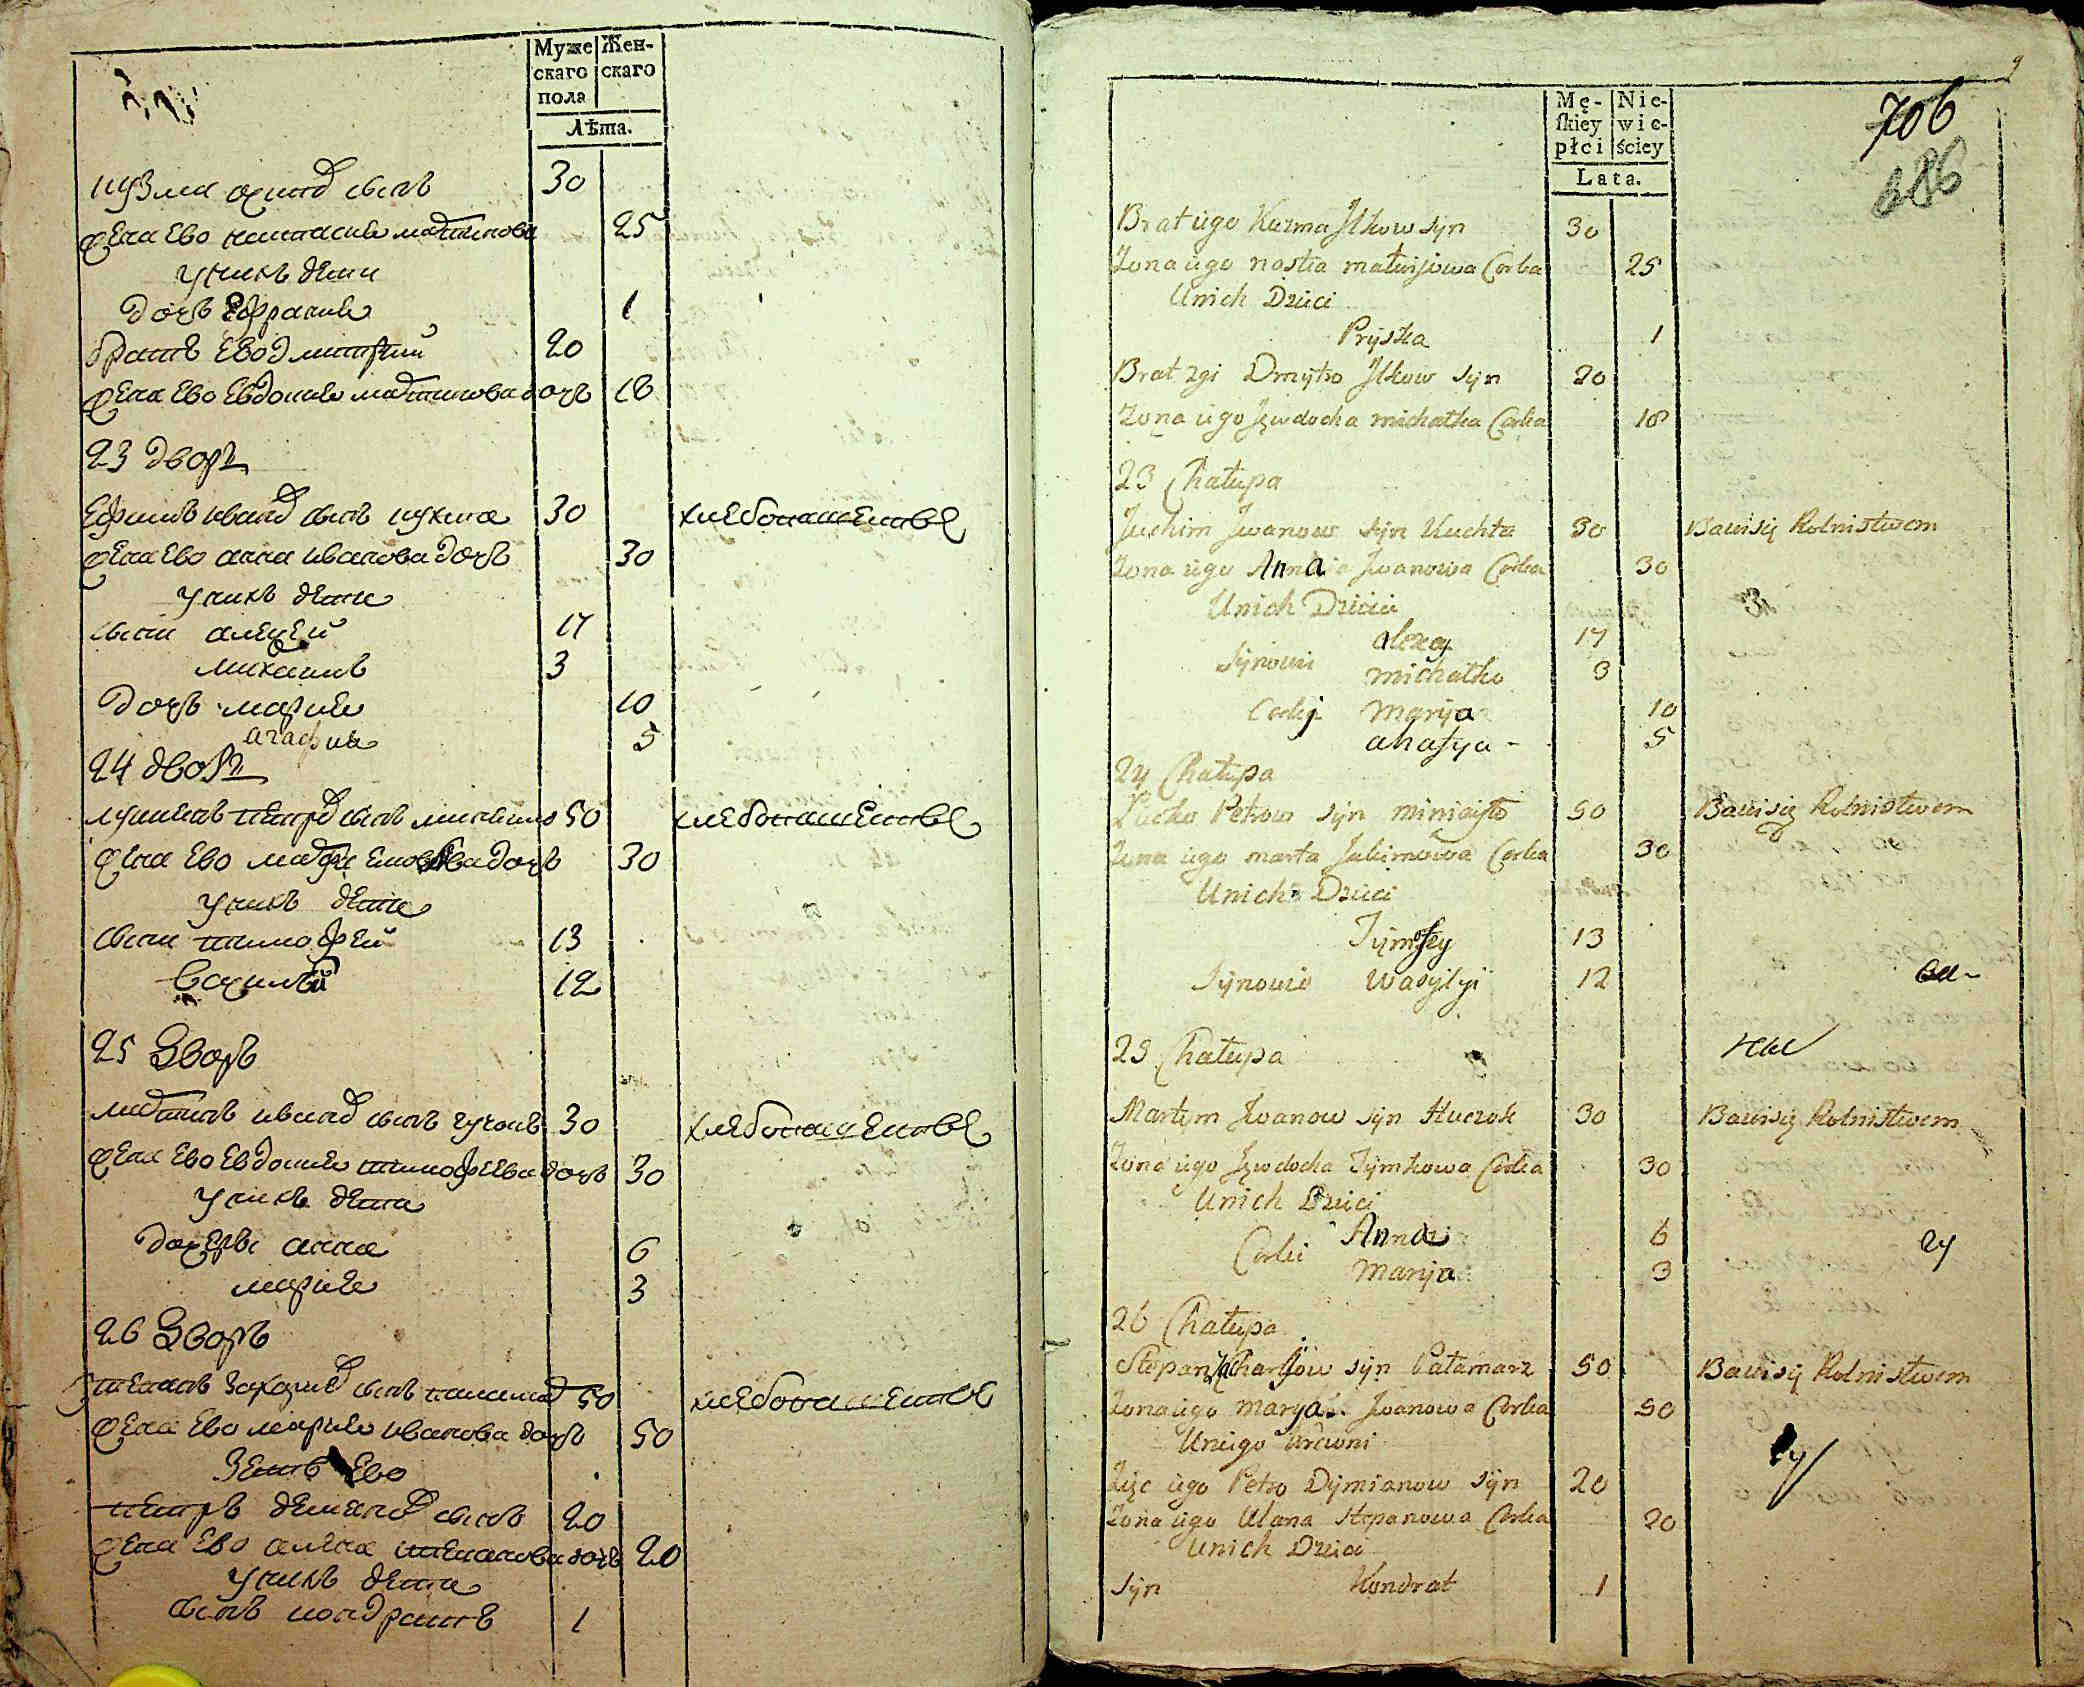 Муже
скаго
пола
Жен-
скаго
Лѣта.
кузма сынъ 30
жена ево настасия 25
у нихъ дети
дочь Ефрасия 1
братъ ево дмитрий 20
жена ево Евдокия дочь 18
23 дворъ
Ефимъ иванов сынъ кухта 30 хлебопашествЕ
жена ево анна иванова дочь 30
у нихъ дети
сыни алецей 17
михаилъ 3
дочь мария 10
агафия 5
24 дворъ
лукианъ петров сынъ 50 хлебопашествЕ
жена ево дочь 30
у нихъ дети
сыни тимофей 13
василий 12
25 дворъ
мартинъ иванов сынъ гучокъ 30 хлебопашествЕ
жена ево Евдокия тимофеева дочь 30
у нихъ дети
дочери анна 6
мария 3
26 дворъ
степанъ захарив сынъ 50 хлебопашествЕ
жена ево мария иванова дочь 50
Зеть Ево
петръ демянов сынъ 20
жена ево алена степанова дочь 20
у нихъ дети
сынъ кондратъ 1
9
706
686
Mę-
ſkiey
płci
Nie-
wie-
ściey
Lata.
Brat iego Kuzma Jlkow syn 30
Zona iego nastia matwijowa Corka 25
Unich Dzieci
Pryska 1
Brat 2gi Dmytro Jlkow syn 20
Zona iego Jewdocha michałka Corka 18
23 Chałupa
Juchim Jwanow syn Kuchta 30 Bawisię Rolnistwem
Zona iego Anna Jwanowa Corka 30
Unich Dzieci
alexa 17
Synowie michałko 3
Corki Marya 10
ahafya - 5
24 Chałupa
Łucko Petrow syn 50 Bawisię Rolnistwem
Zona iego marta Jukimowa Corka 30
Unich Dzieci
Tymofiey 13
Synowie Wasylyi 12
25 Chałupa
Martym Jwanow syn Huczok 30 Bawisię Rolnistwem
Zona iego Jewdocka Tymkowa Corka 30
Unich Dzieci
Corki Anna 6
Marija 3
26 Chałupa
Stepan Zacharyow syn Pałamarz 50 Bawisię Rolnistwem
Zona iego marya Jwanowa Corka 50
Uniego krewni
Zięc iego Petro Dymianow syn 20
Zona iego Ulana Stepanowa Corka 20
Unich Dzieci
Syn Kondrat 1